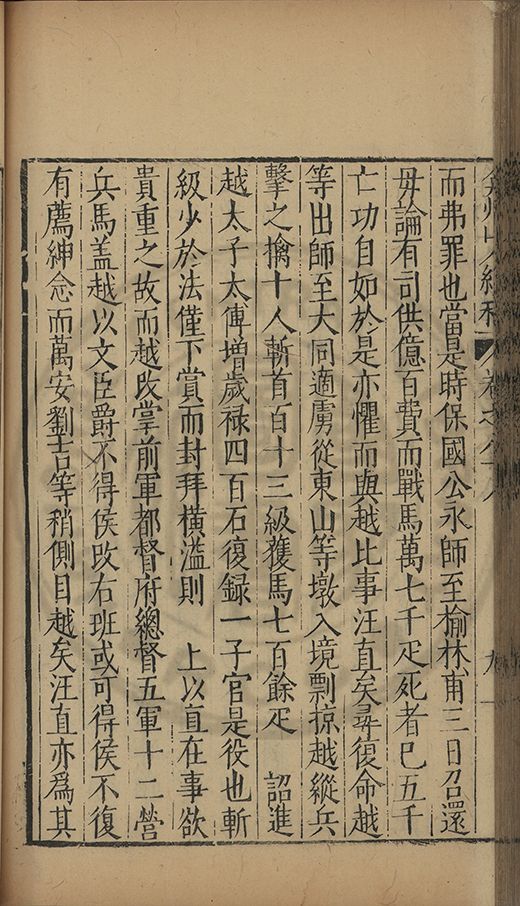 弇州山人續稿 卷之八十八 九
而弗罪也當是時保國公永師至榆林甫三日召還
毋論有司供億百費而戰馬萬七千疋死者已五千
亡功自如於是亦懼而與越比事汪直矣尋復命越
等出師至大同適虜從東山等墩入境剽掠越縱兵
擊之擒十人斬首百十三級獲馬七百餘疋 詔進
越太子太傅增歲禄四百石復録一子官是役也斬
級少於法僅下賞而封拜橫溢則 上以直在事欲
貴重之故而越改掌前軍都督府總督五軍十二營
兵馬盖越以文臣爵不得侯改右班或可得侯不復
有薦紳念而萬安劉吉等稍側目越矣汪直亦爲其